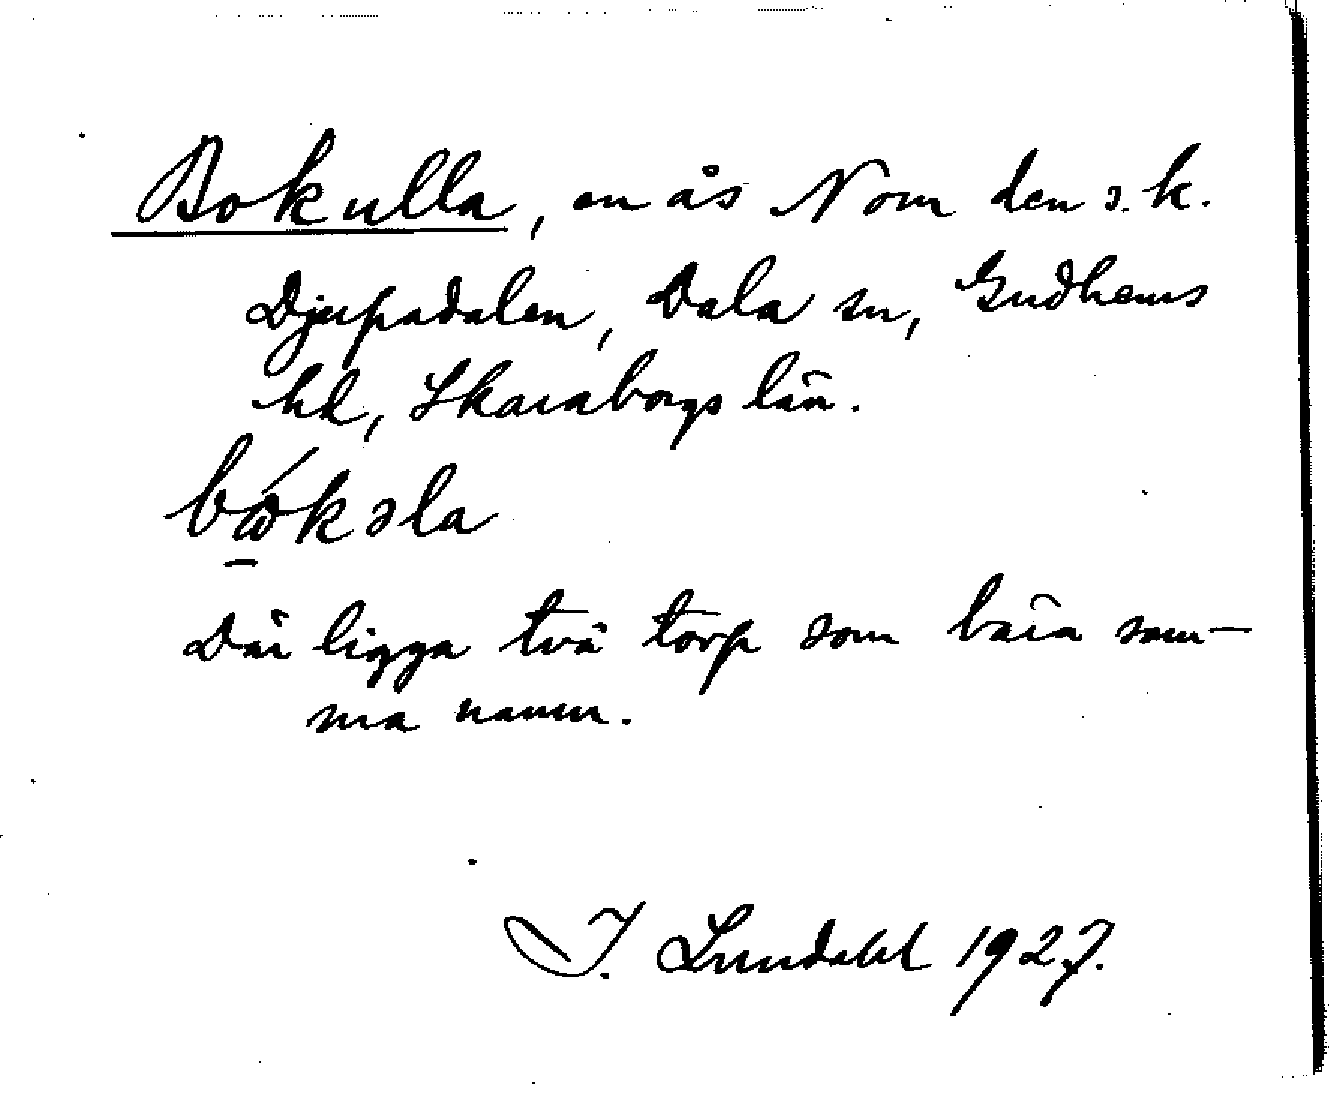 Bokulla, en ås N om den s.k.
Djupadalen, Dala sn, Gudhems
hd, Skaraborgs län.
bώ̲kəla
Där ligga två torp som bära sam-
ma namn.
I. Lundahl 1927.